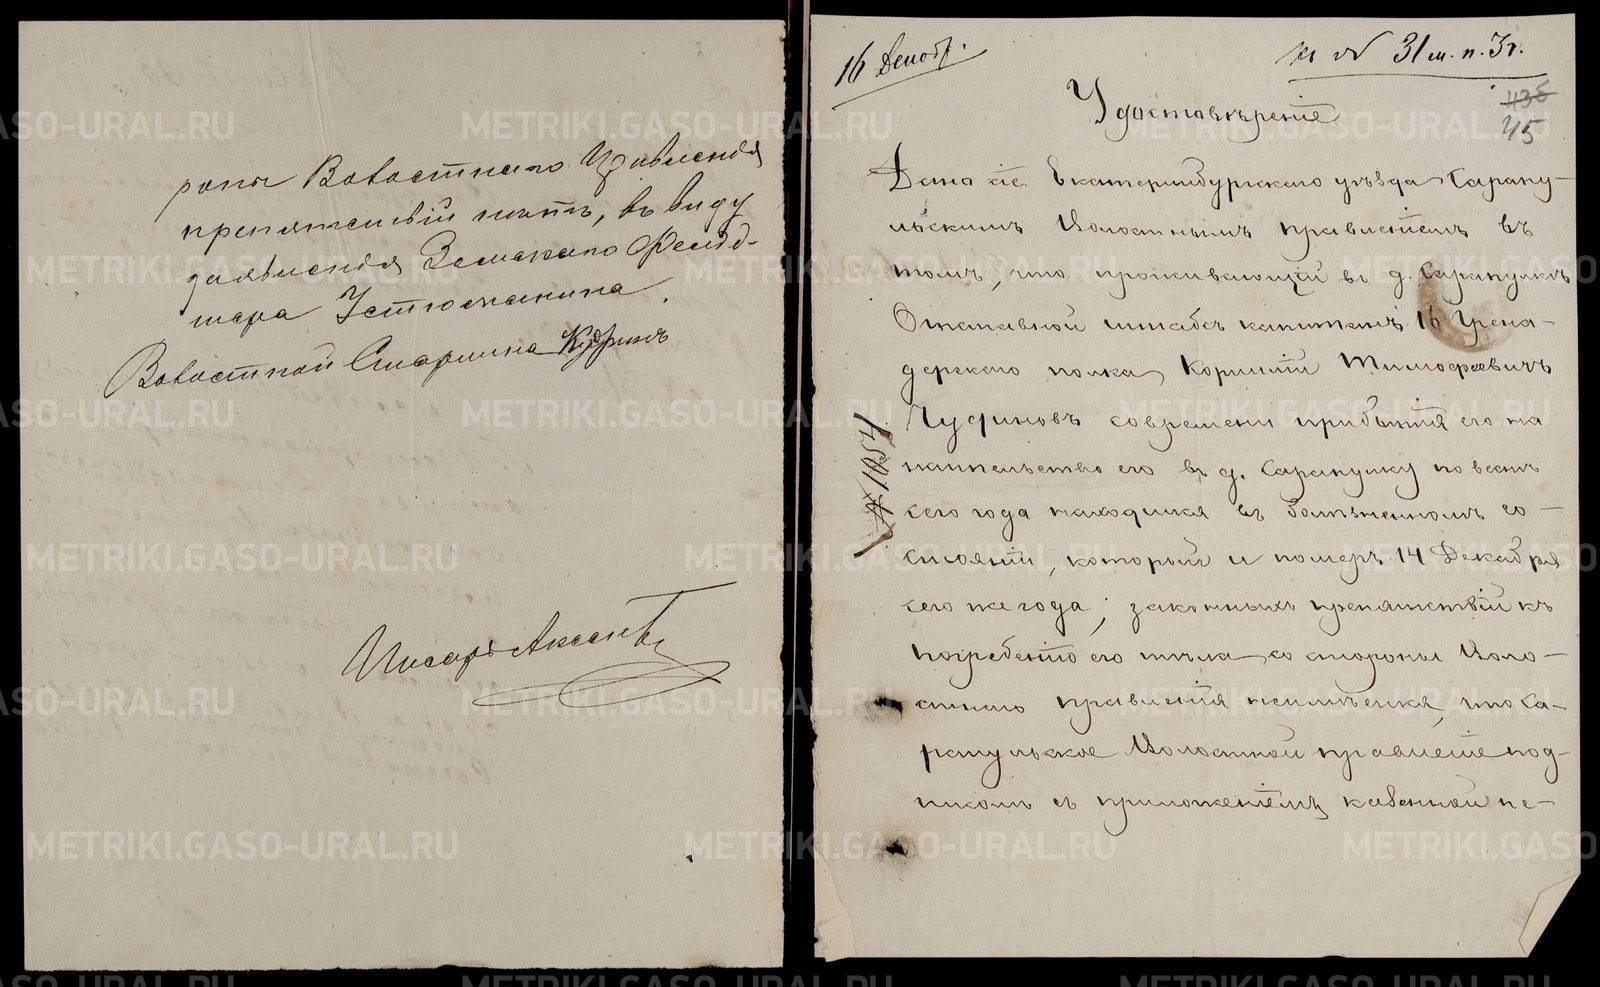 роны Волостнаго Правленія
препятствій нѣтъ, въ виду
заявленія Земскаго Фельд-
шера Устюжанина.
Волостной Старшина Кудринъ
Писарь Аксенов
16 Декабр.
къ № 31 м. п. 3 г.
Удостовѣреніе
436
45
Дано сіе Екатеринбургскаго уѣзда Сарапу-
льскимъ Волостнымъ правленіемъ въ
томъ, что проживающій въ д. Сарапулкѣ
Отставной штабсъ капитанъ 16 Грена-
дерскаго полка Корнилій Тимофеевичъ
Чудиновъ современи прибытія его на
жительство его въ д. Сарапулку повеснѣ
сего года находился въ болѣзненномъ со-
стояніи, который и померъ 14 Декабря
сего же года; законныхъ препятствій къ
погребенію его тѣла со стороны Воло-
стнаго правленія неимѣется, что Са-
рапульское Волостной правленіе под-
писомъ съ приложеніемъ казенной пе-
METRIKI.GASO-URAL.RU